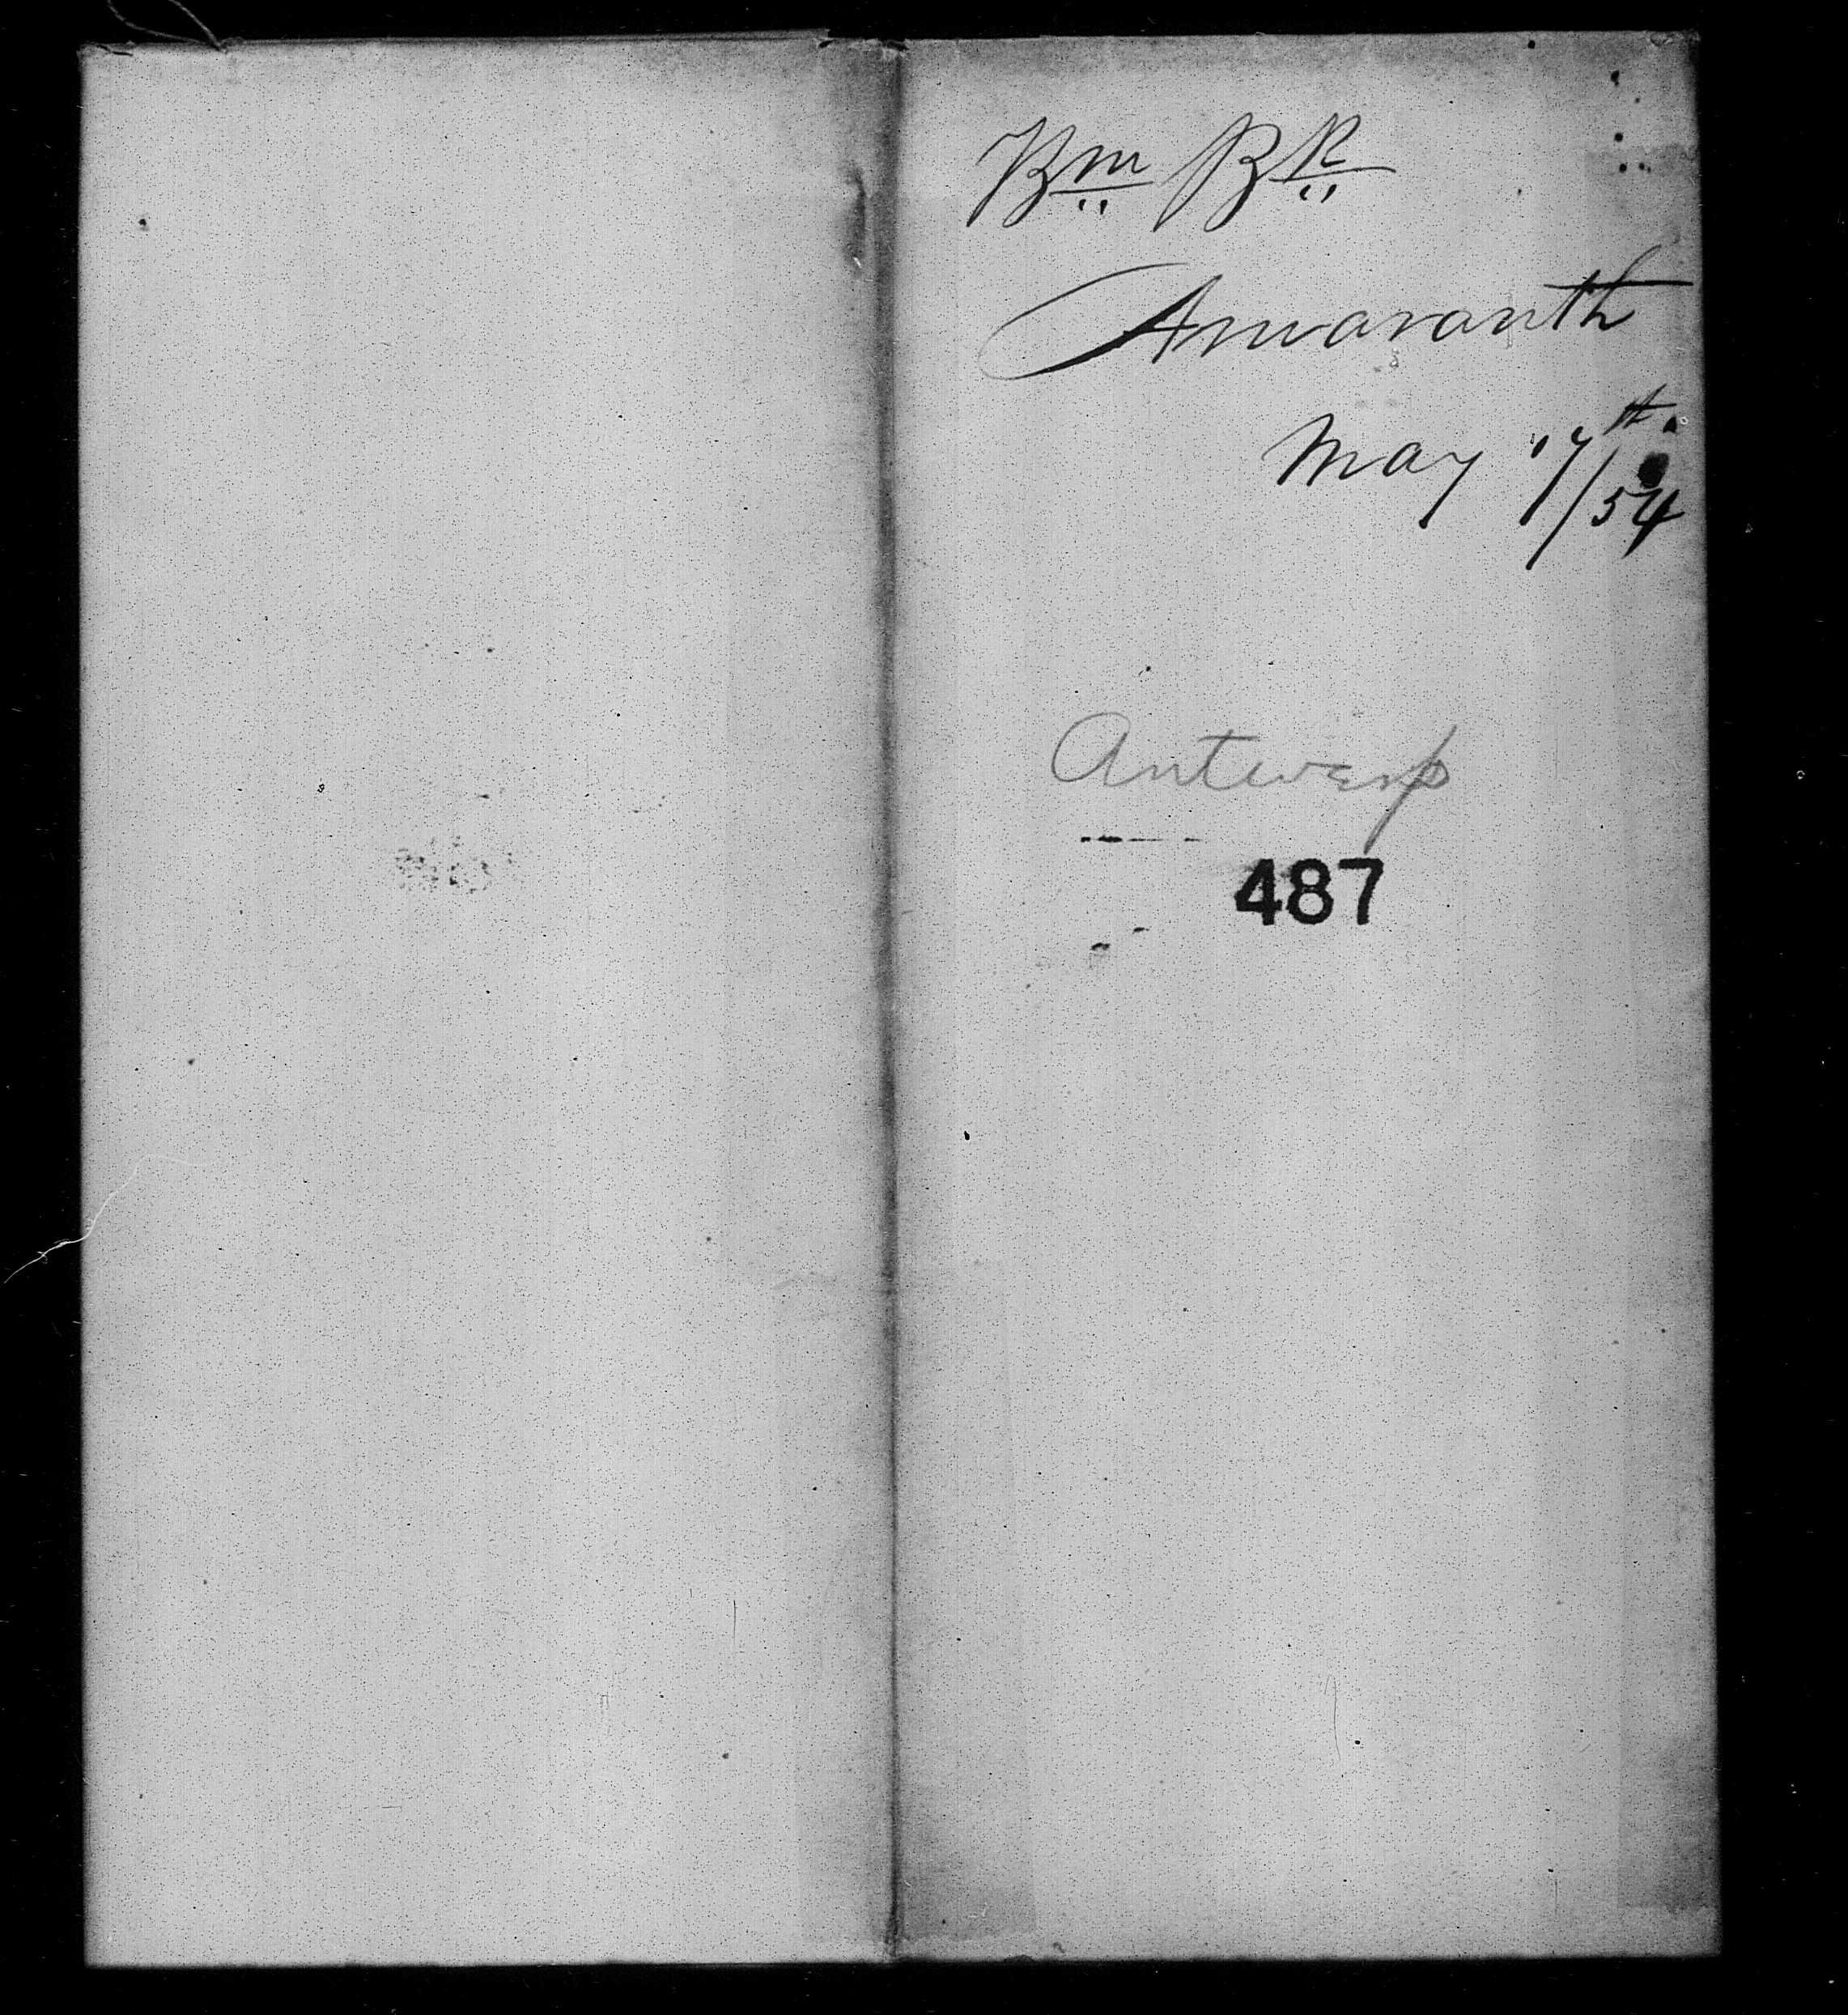 Bm Bk
Amaranth
May 17th/54
Antwerp
487